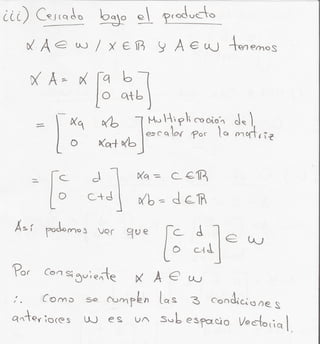 iii) Cerrado bajo el producto
α A ∈ w / α ∈ ℝ y A ∈ w tenemos
α A = α [a b
0 a+b]
= [αa αb
0 αa+αb] Multiplicación del
escalar por la matriz
= [c d
0 c+d] αa = c ∈ ℝ
αb = d ∈ ℝ
Así podemos ver que [c d
0 c+d] ∈ w
Por consiguiente α A ∈ w
∴ Como se cumplen las 3 condiciones
anteriores w es un subespacio vectorial.